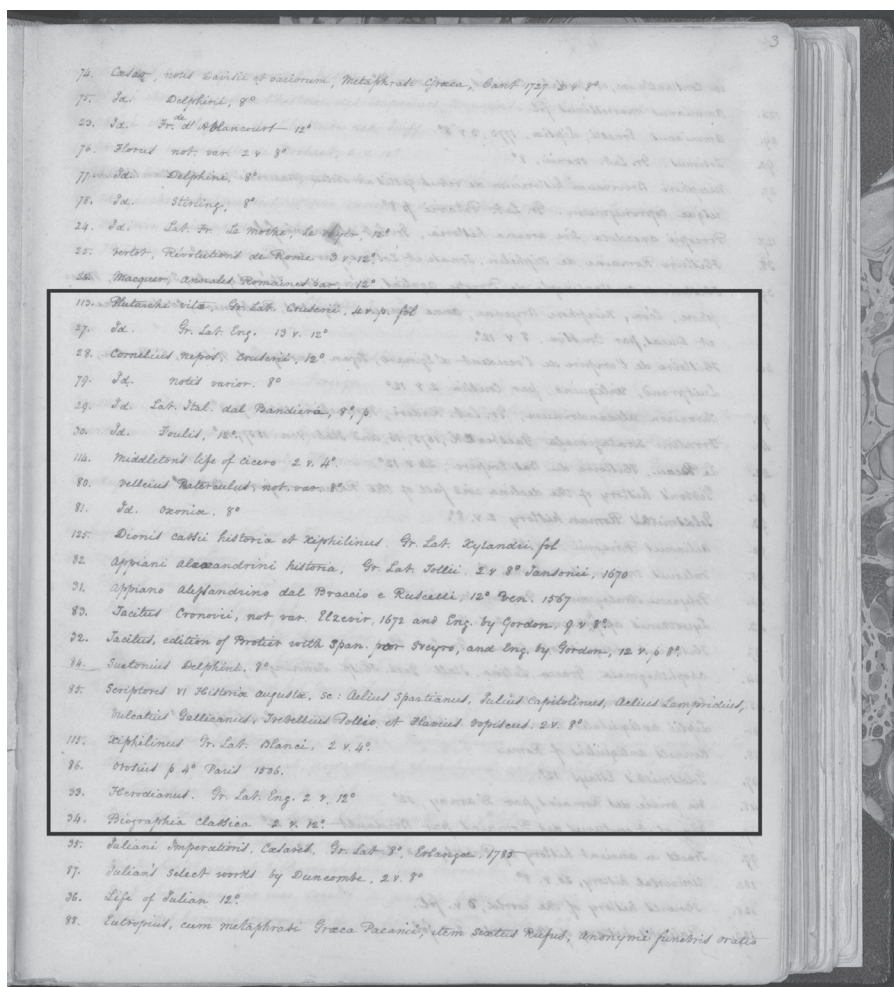 3
74. Caesar, notis Davisii et variorum, Metaphrasi Graeca, Cant 1727. 2 v 8º
75. Id. Delphini, 8º
23. Id. Fr. de d'Ablancourt 12º
76. Florus not. var. 2 v 8º
77. Id. Delphini, 8º
78. Id. Stirling, 8º
24. Id. Lat. Fr. Le Mothe, Le Vayer, 12º
25. Vertot, Révolutions de Rome 3 v. 12º
26. Macquer, Annales Romaines par, 12º
113. Plutarchi vitae, Gr. Lat. Cruserii, 4 v. p. fol
27. Id. Gr. Lat. Eng. 13 v. 12º
28. Cornelius Nepos, Cruserii, 12º
79. Id. notis varior. 8º
29. Id. Lat. Ital. dal Bandiera, 8º, p
30. Id. Foulis, 12º.
114. Middleton's life of Cicero 2 v. 4º.
80. Velleius Paterculus, not. var. 8º
81. Id. Oxoniae. 8º
125. Dionis Cassii historia et Xiphilinus. Gr. Lat. Xylandri. fol
82. Appiani Alexandrini historia, Gr. Lat. Tollii. 2 v 8º Jansonii, 1670
31. Appiano Alessandrino dal Braccio e Ruscelli, 12º Ven. 1567
83. Tacitus Gronovii, not var. Elzevir, 1672 and Eng. by Gordon, 9 v 8º.
32. Tacitus, edition of Brotier with Span. por Sueyro, and Eng. by Gordon, 12 v. p 8º.
84. Suetonius Delphini, 8º
85. Scriptores VI Historia augustae, sc: Aelius Spartianus, Julius Capitolinus, Aelius Lampridius,
Vulcatius Gallicanus, Trebellius Pollio, et Flavius Vopiscus. 2 v. 8º
115. Xiphilinus Gr. Lat. Blanci, 2 v. 4º.
86. Orosius p 4º Paris 1536.
33. Herodianus. Gr. Lat. Eng. 2 v. 12º
34. Biographia Classica 2 v. 12º.
35. Juliani Imperatoris, Caesares, Gr. Lat 8º, Erlangae, 1785
87. Julian's select works by Duncombe, 2 v. 8º
36. Life of Julian 12º.
88. Eutropius, cum metaphrasi Graeca Paeanii, item Sextus Rufus, anonymi funebris oratio